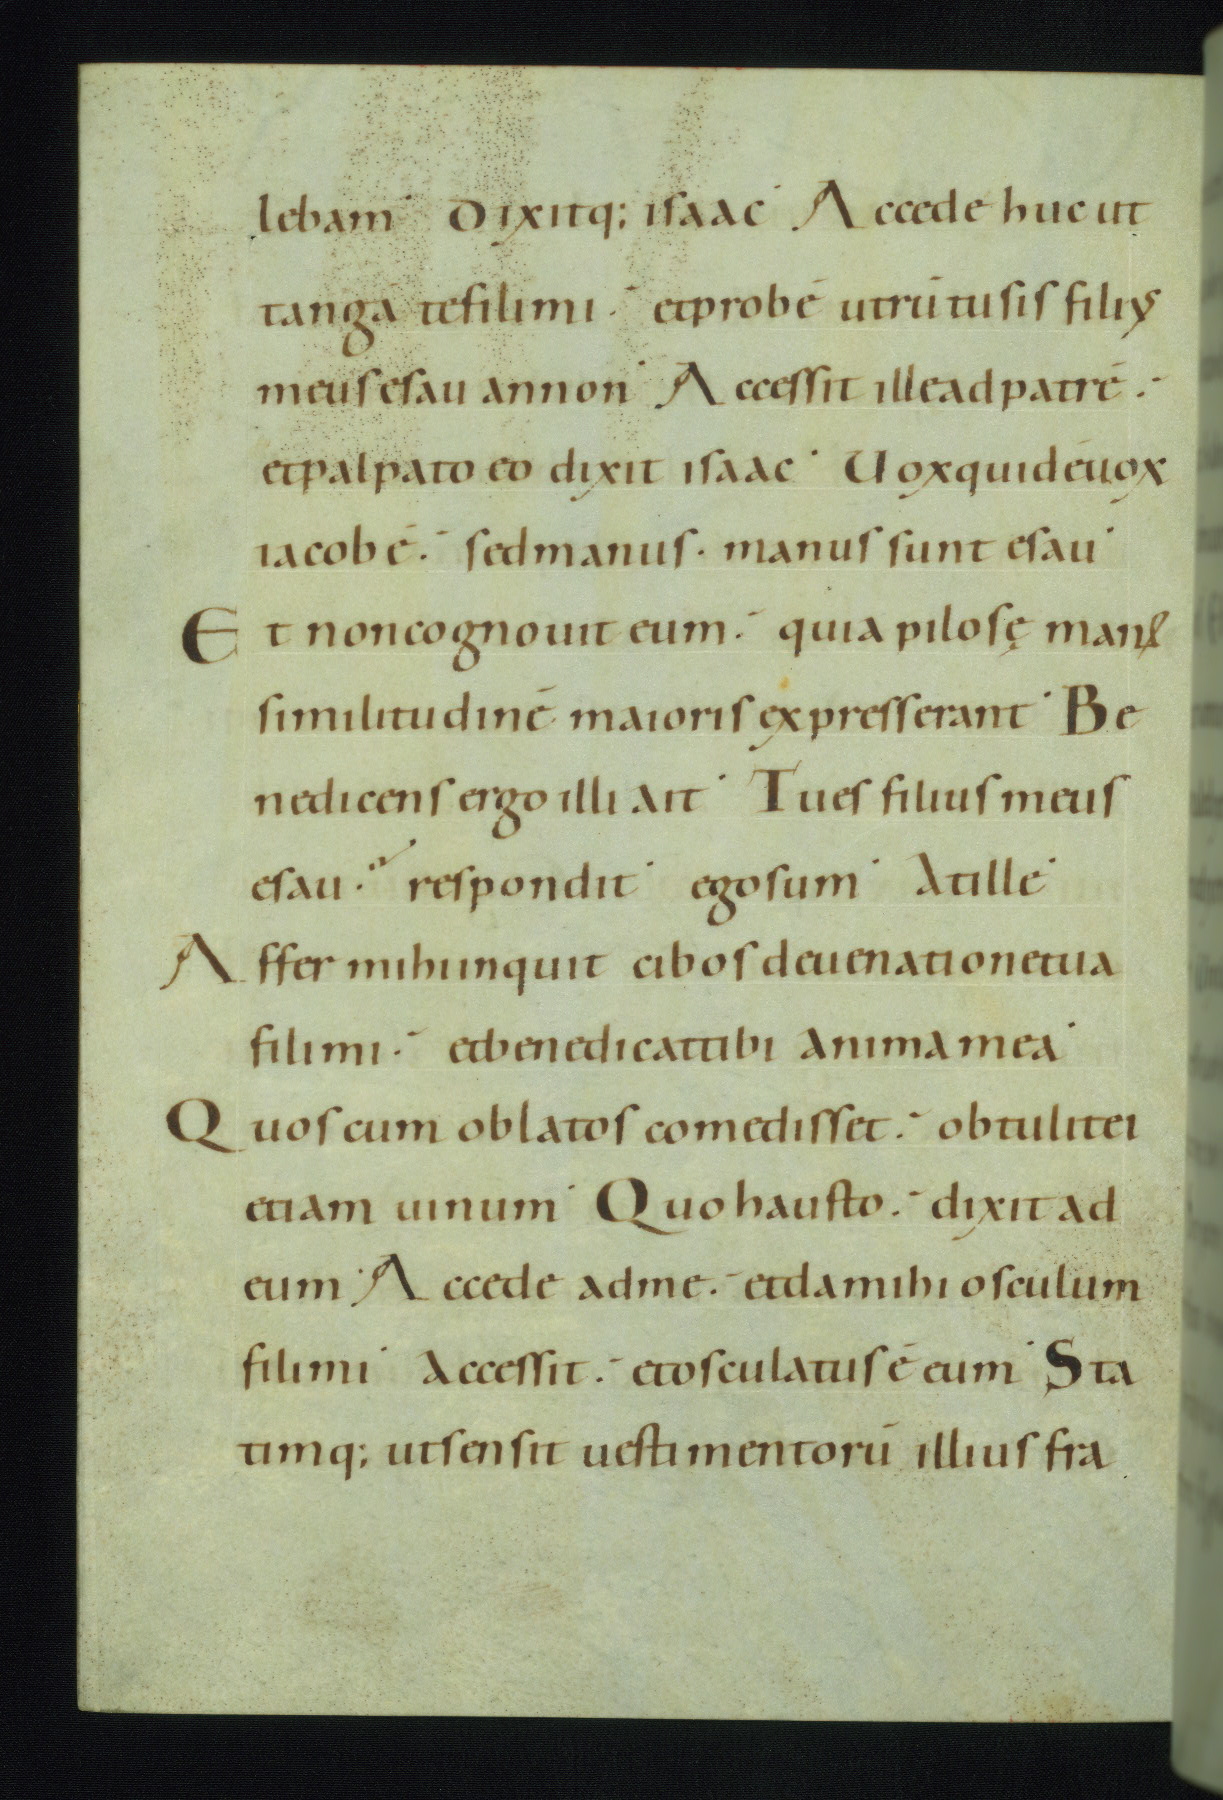 lebam· Dixitq; isaac· Accede huc ut
tanga te fili mi· et probē utrū tu sis filiꝰ
meus esau an non· Accessit ille ad patrē·
et palpato eo dixit isaac· Uox quidē uox
iacob ē· sed manus· manus sunt esau·
Et non cognouit eum· quia pilosę manꝰ
similitudinē maioris expresserant· Be
nedicens ergo illi ait· Tu es filius meus
esau· respondit· ego sum· At ille·
Affer mihi inquit cibos de uenatione tua
fili mi· et benedicat tibi anima mea·
Quos cum oblatos comedisset· obtulit ei
etiam uinum· Quo hausto· dixit ad
eum· Accede ad me· et da mihi osculum
fili mi· Accessit· et osculatus ē eum· Sta
timq; ut sensit uestimentorū illius fra